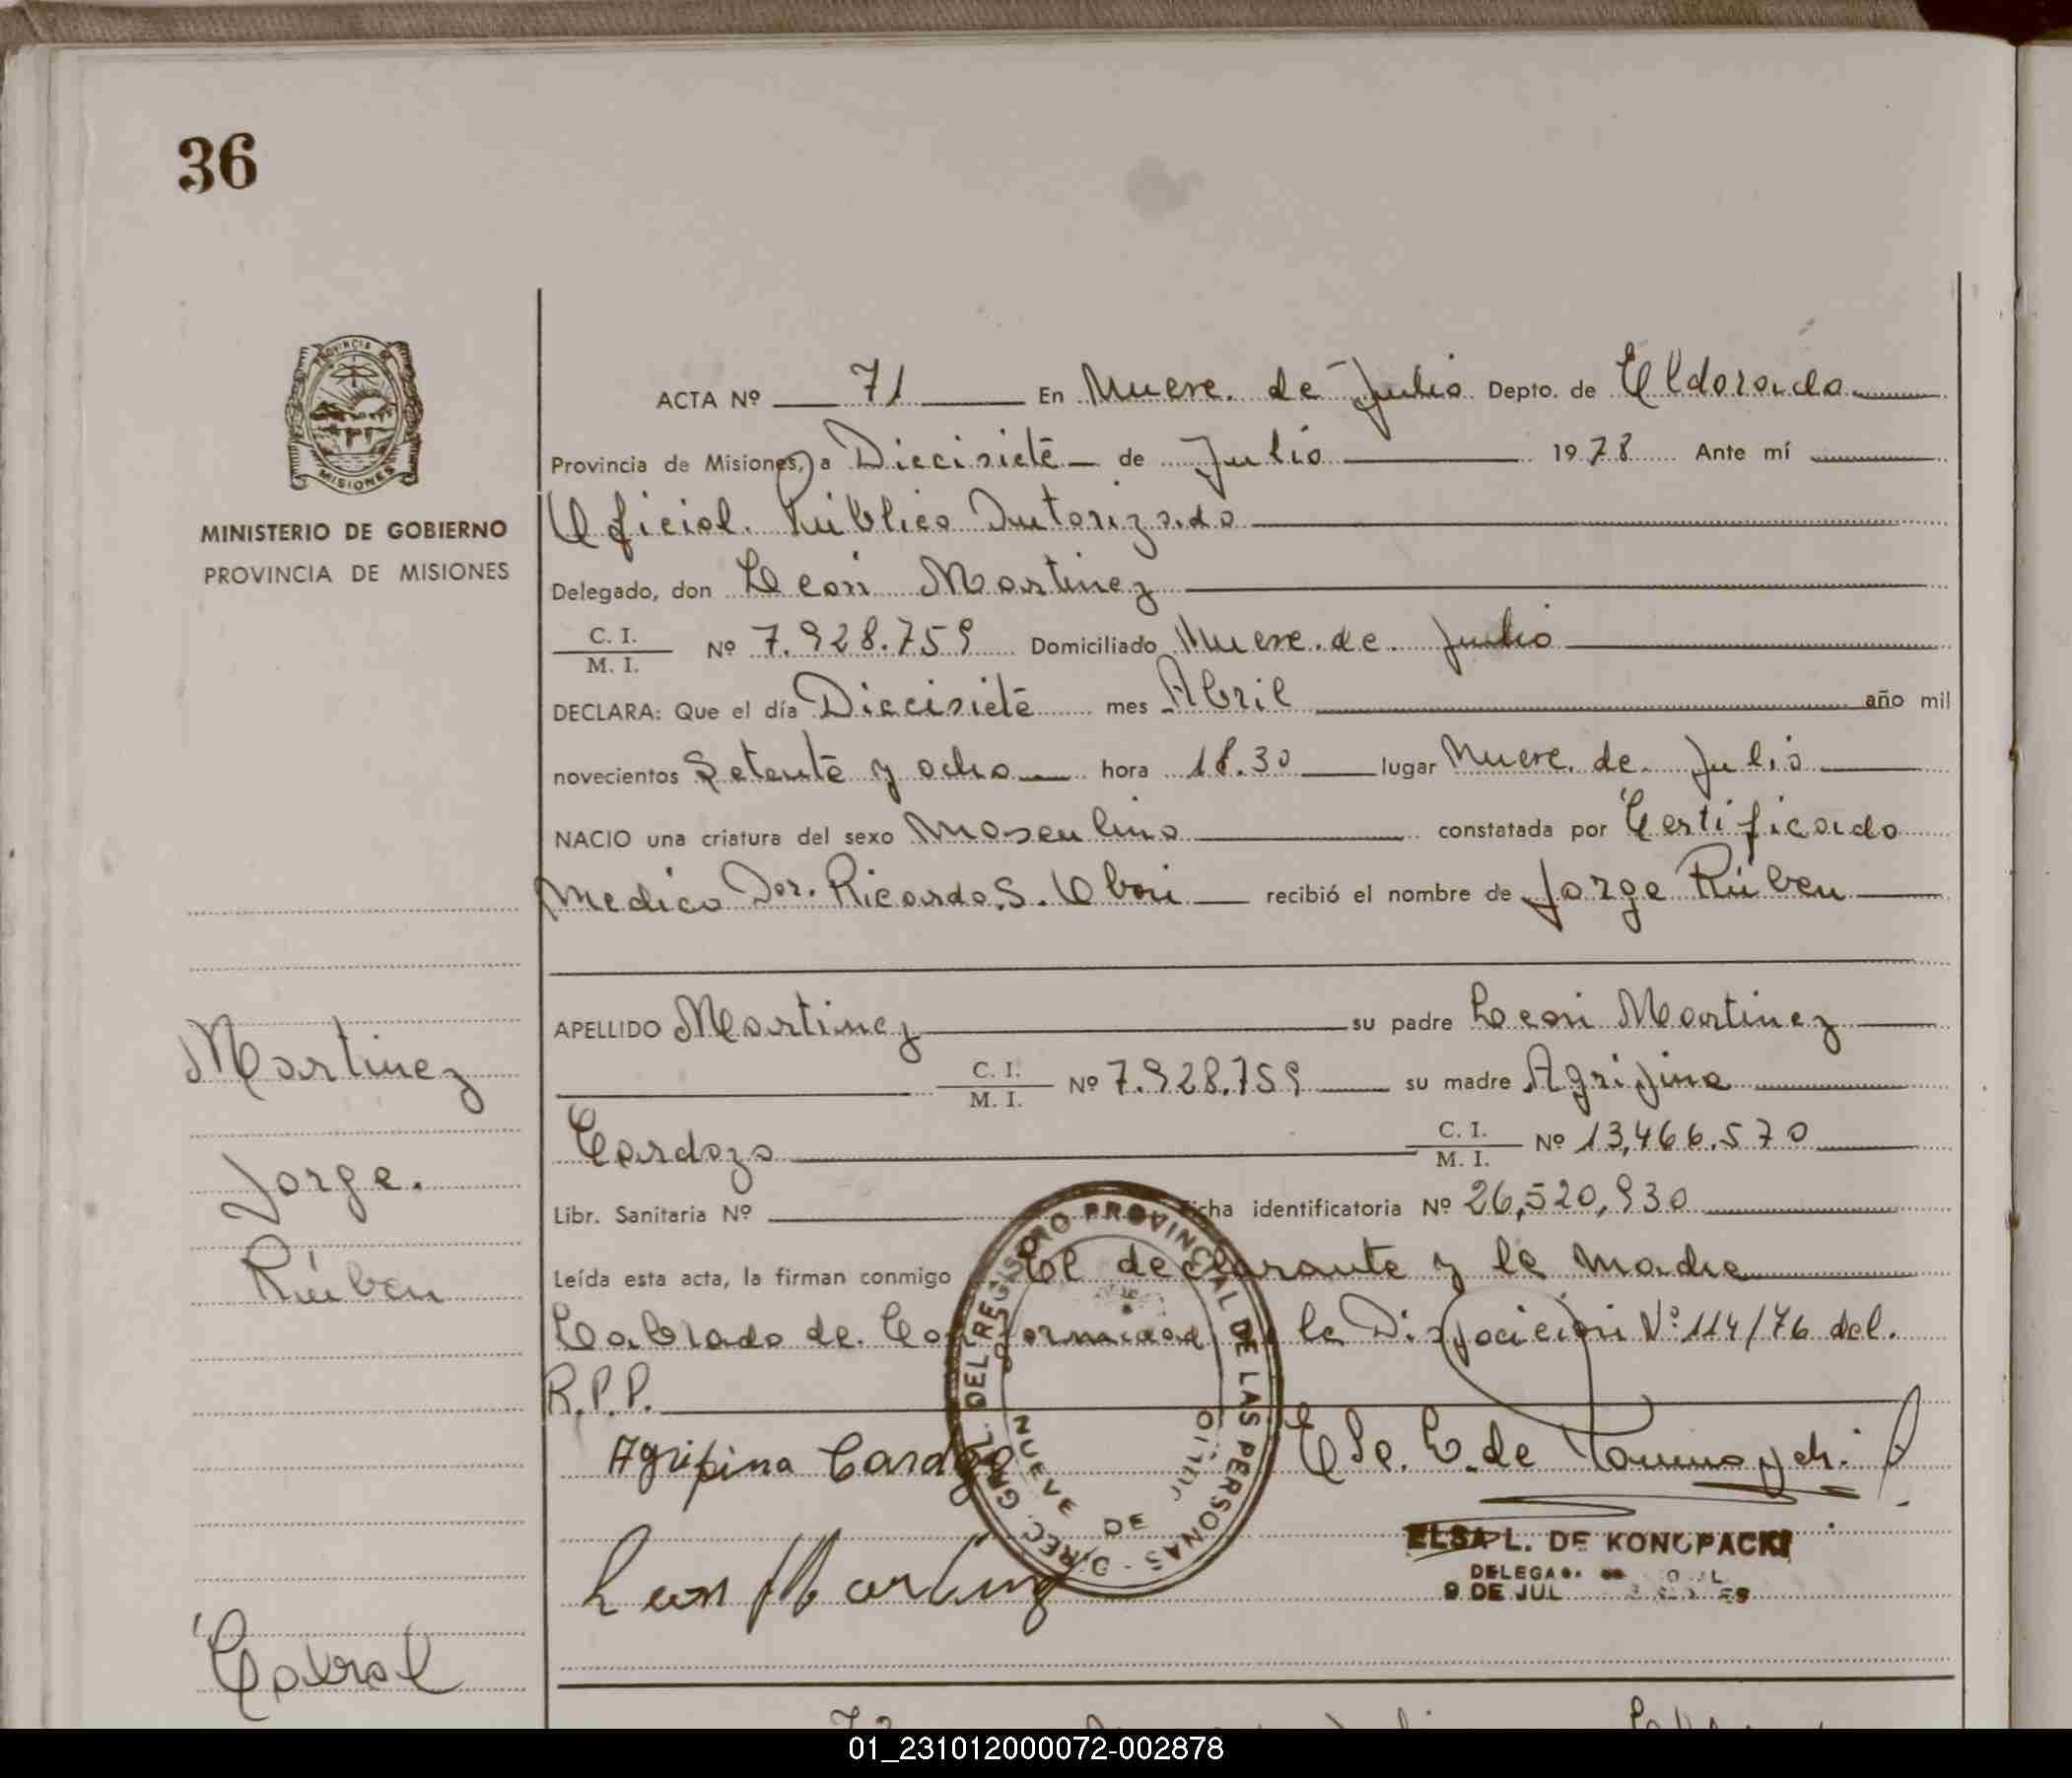 36
PROVINCIA DE
MISIONES
MINISTERIO DE GOBIERNO
PROVINCIA DE MISIONES
ACTA Nº 71 En Nueve de Julio Depto. de Eldorado
Provincia de Misiones, a Diecisiete de Julio 1978 Ante mí
Oficial Público Autorizado
Delegado, don León Martinez
C. I.
M. I. Nº 7.928.759 Domiciliado Nueve de Julio
DECLARA: Que el día Diecisiete mes Abril año mil
novecientos Setenta y ocho hora 18.30 lugar Nueve de Julio
NACIO una criatura del sexo Masculino constatada por Certificado
Medico Dor. Ricardo S. recibió el nombre de Jorge Rúben
APELLIDO Martinez su padre León Martinez
C. I.
M. I. Nº 7.928.759 su madre Agripina
Cardozo C. I.
M. I. Nº 13,466.570
Libr. Sanitaria Nº Ficha identificatoria Nº 26,520,930
Leída esta acta, la firman conmigo El declarante y la Madre
Labrado de Conformidad a la Dispocición Nº 114/76 del
R.P.P.
Martinez
Jorge.
Rúben
Agripina Cardozo
Leon Martinez
DIREC. GRAL. DEL REGISTRO PROVINCIAL DE LAS PERSONAS
NUEVE DE JULIO
ELSA L. DE KONOPACKI
9 DE JUL
Cabral
01_231012000072-002878